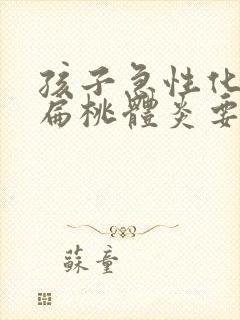 孩子急性化
扁桃體炎要
蘇童